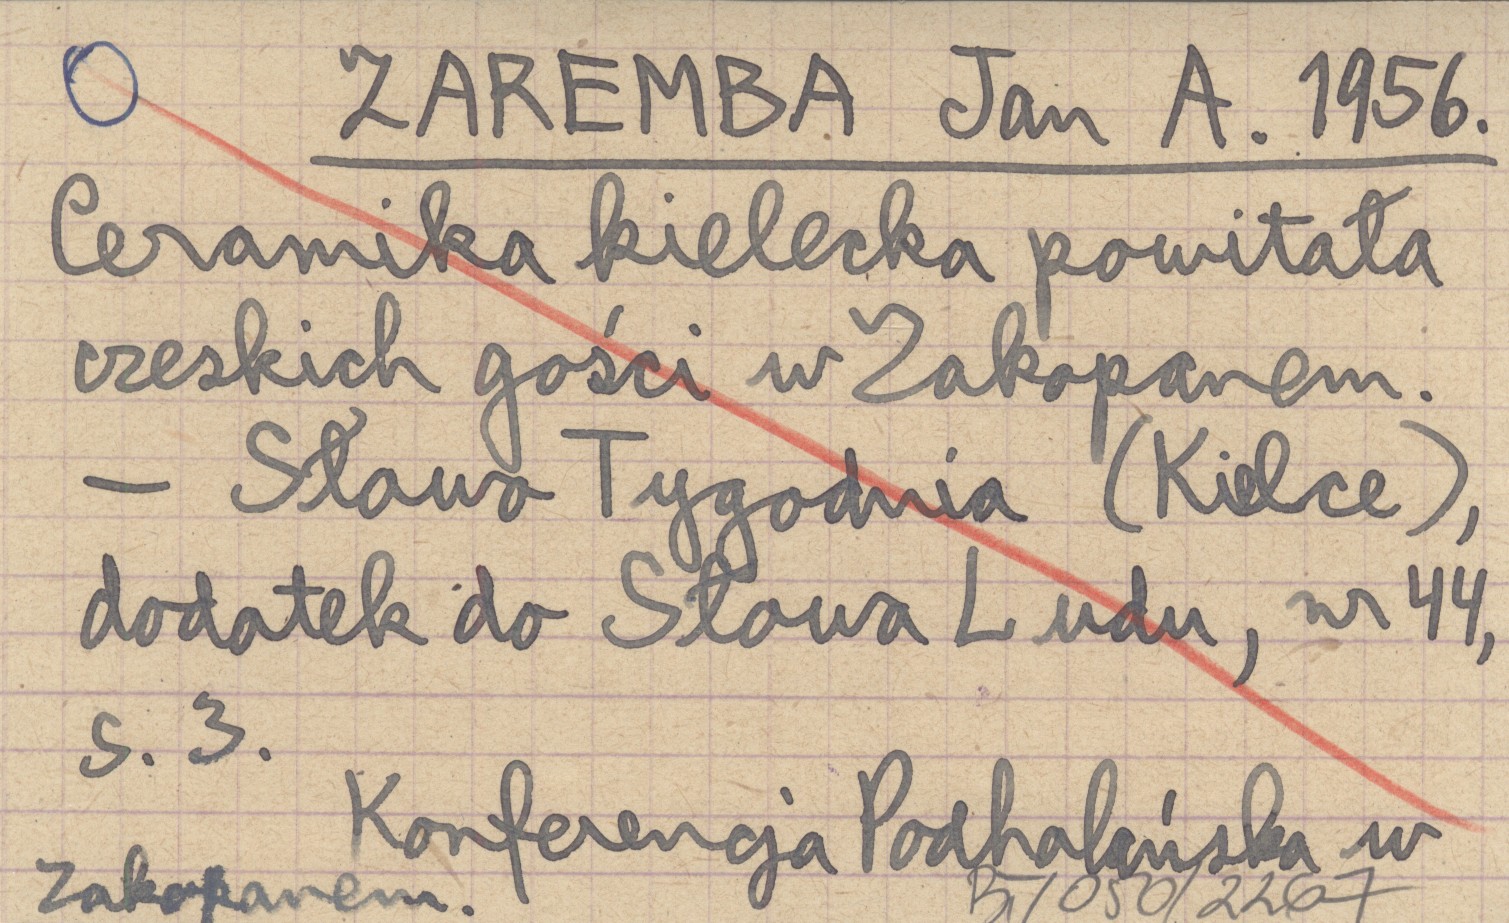 ZAREMBA Jan A. 1956.
Ceramika kielecka powitała
czeskich gości w Zakopanem.
— Słowo Tygodnia (Kielce),
dodatek do Słowa Ludu, nr 44,
s. 3.
Konferencja Podhalańska w
Zakopanem.
BT/050/2267